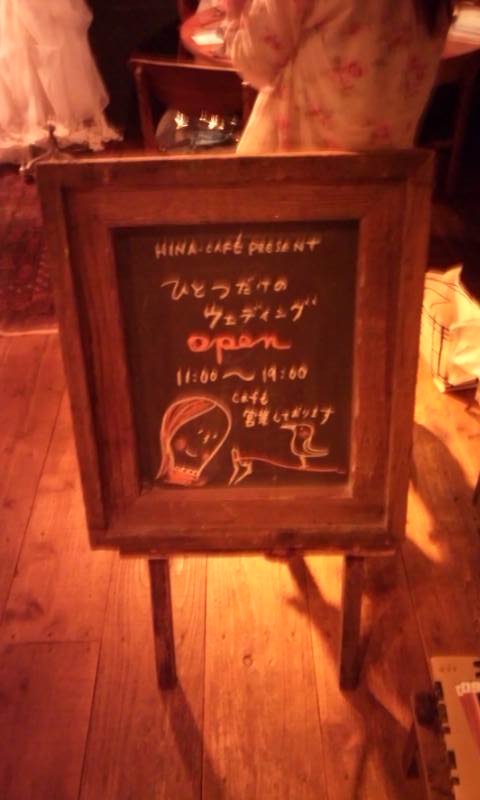 HINA-CAFÉ PRESENT
ひとつだけの
ウェディング
open
11:00～19:00
Café
営業しております